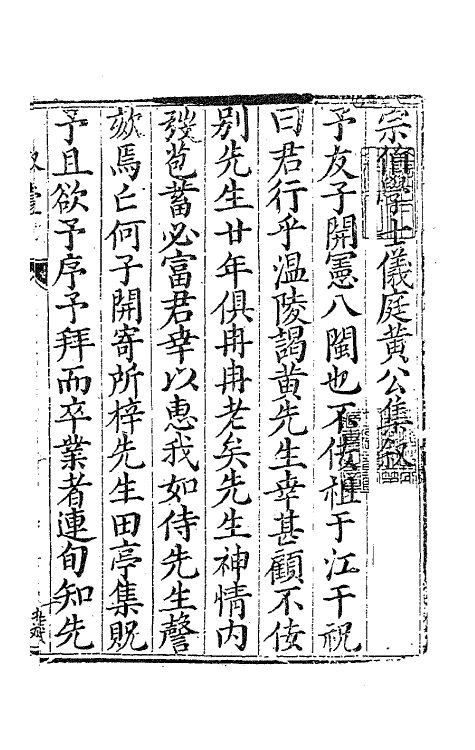 宗伯學士儀庭黃公集敘
予友子開憲八閩也不佞祖于江干祝
曰君行乎溫陵謁黃先生幸甚顧不佞
別先生廿年俱冉冉老矣先生神情內
發苞蓄必富君幸以惠我如侍先生謦
欬焉亡何子開寄所梓先生田亭集貺
予且欲予序予拜而卒業者連旬知先